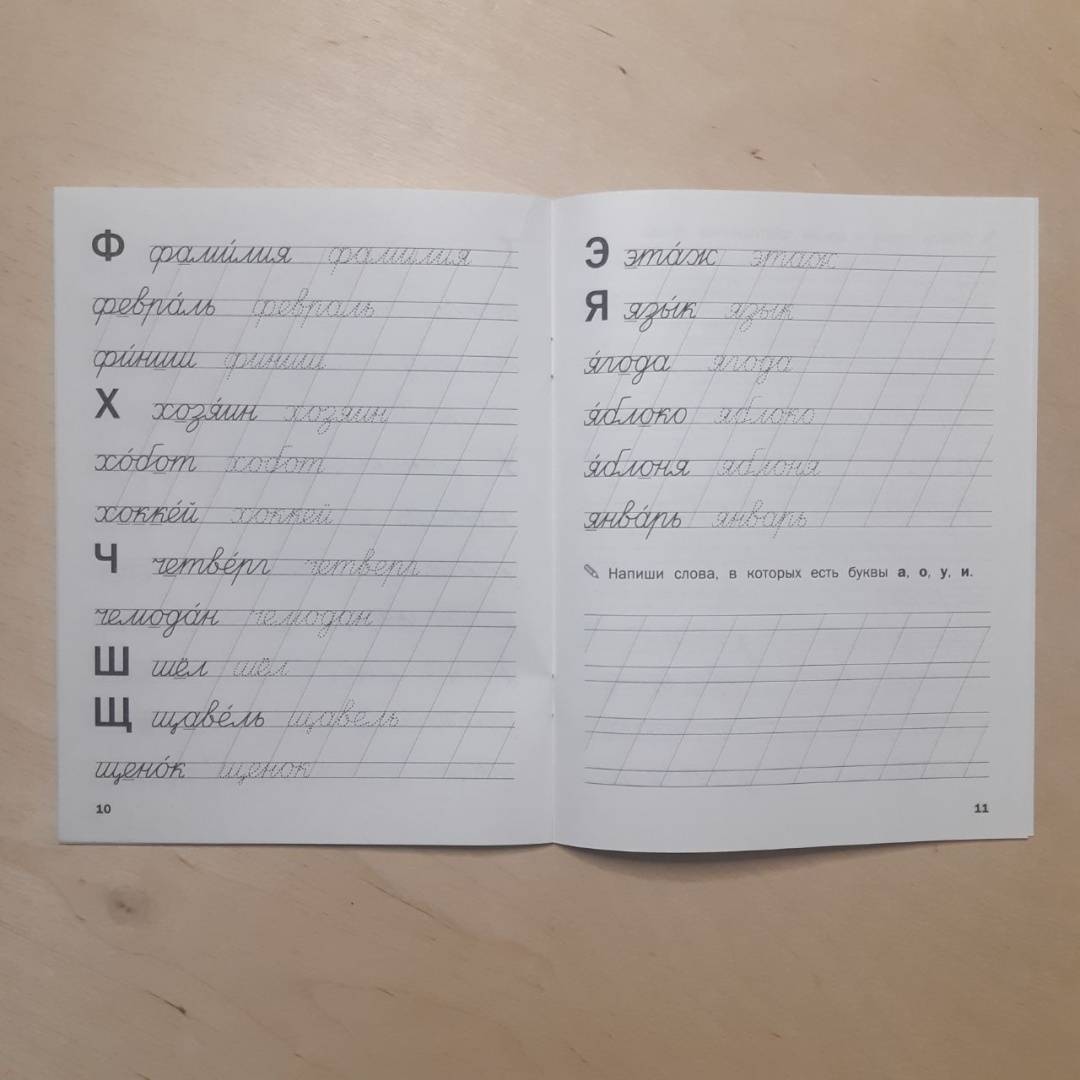 Ф фами́лия фамилия
февра́ль февраль
фи́ниш финиш
Х хозя́ин хозяин
хо́бот хобот
хокке́й хоккей
Ч четве́рг четверг
чемода́н чемодан
Ш шёл шёл
Щ щаве́ль щавель
щено́к щенок
10
Э эта́ж этаж
Я язы́к язык
я́года ягода
я́блоко яблоко
я́блоня яблоня
янва́рь январь
Напиши слова, в которых есть буквы а, о, у, и.
11